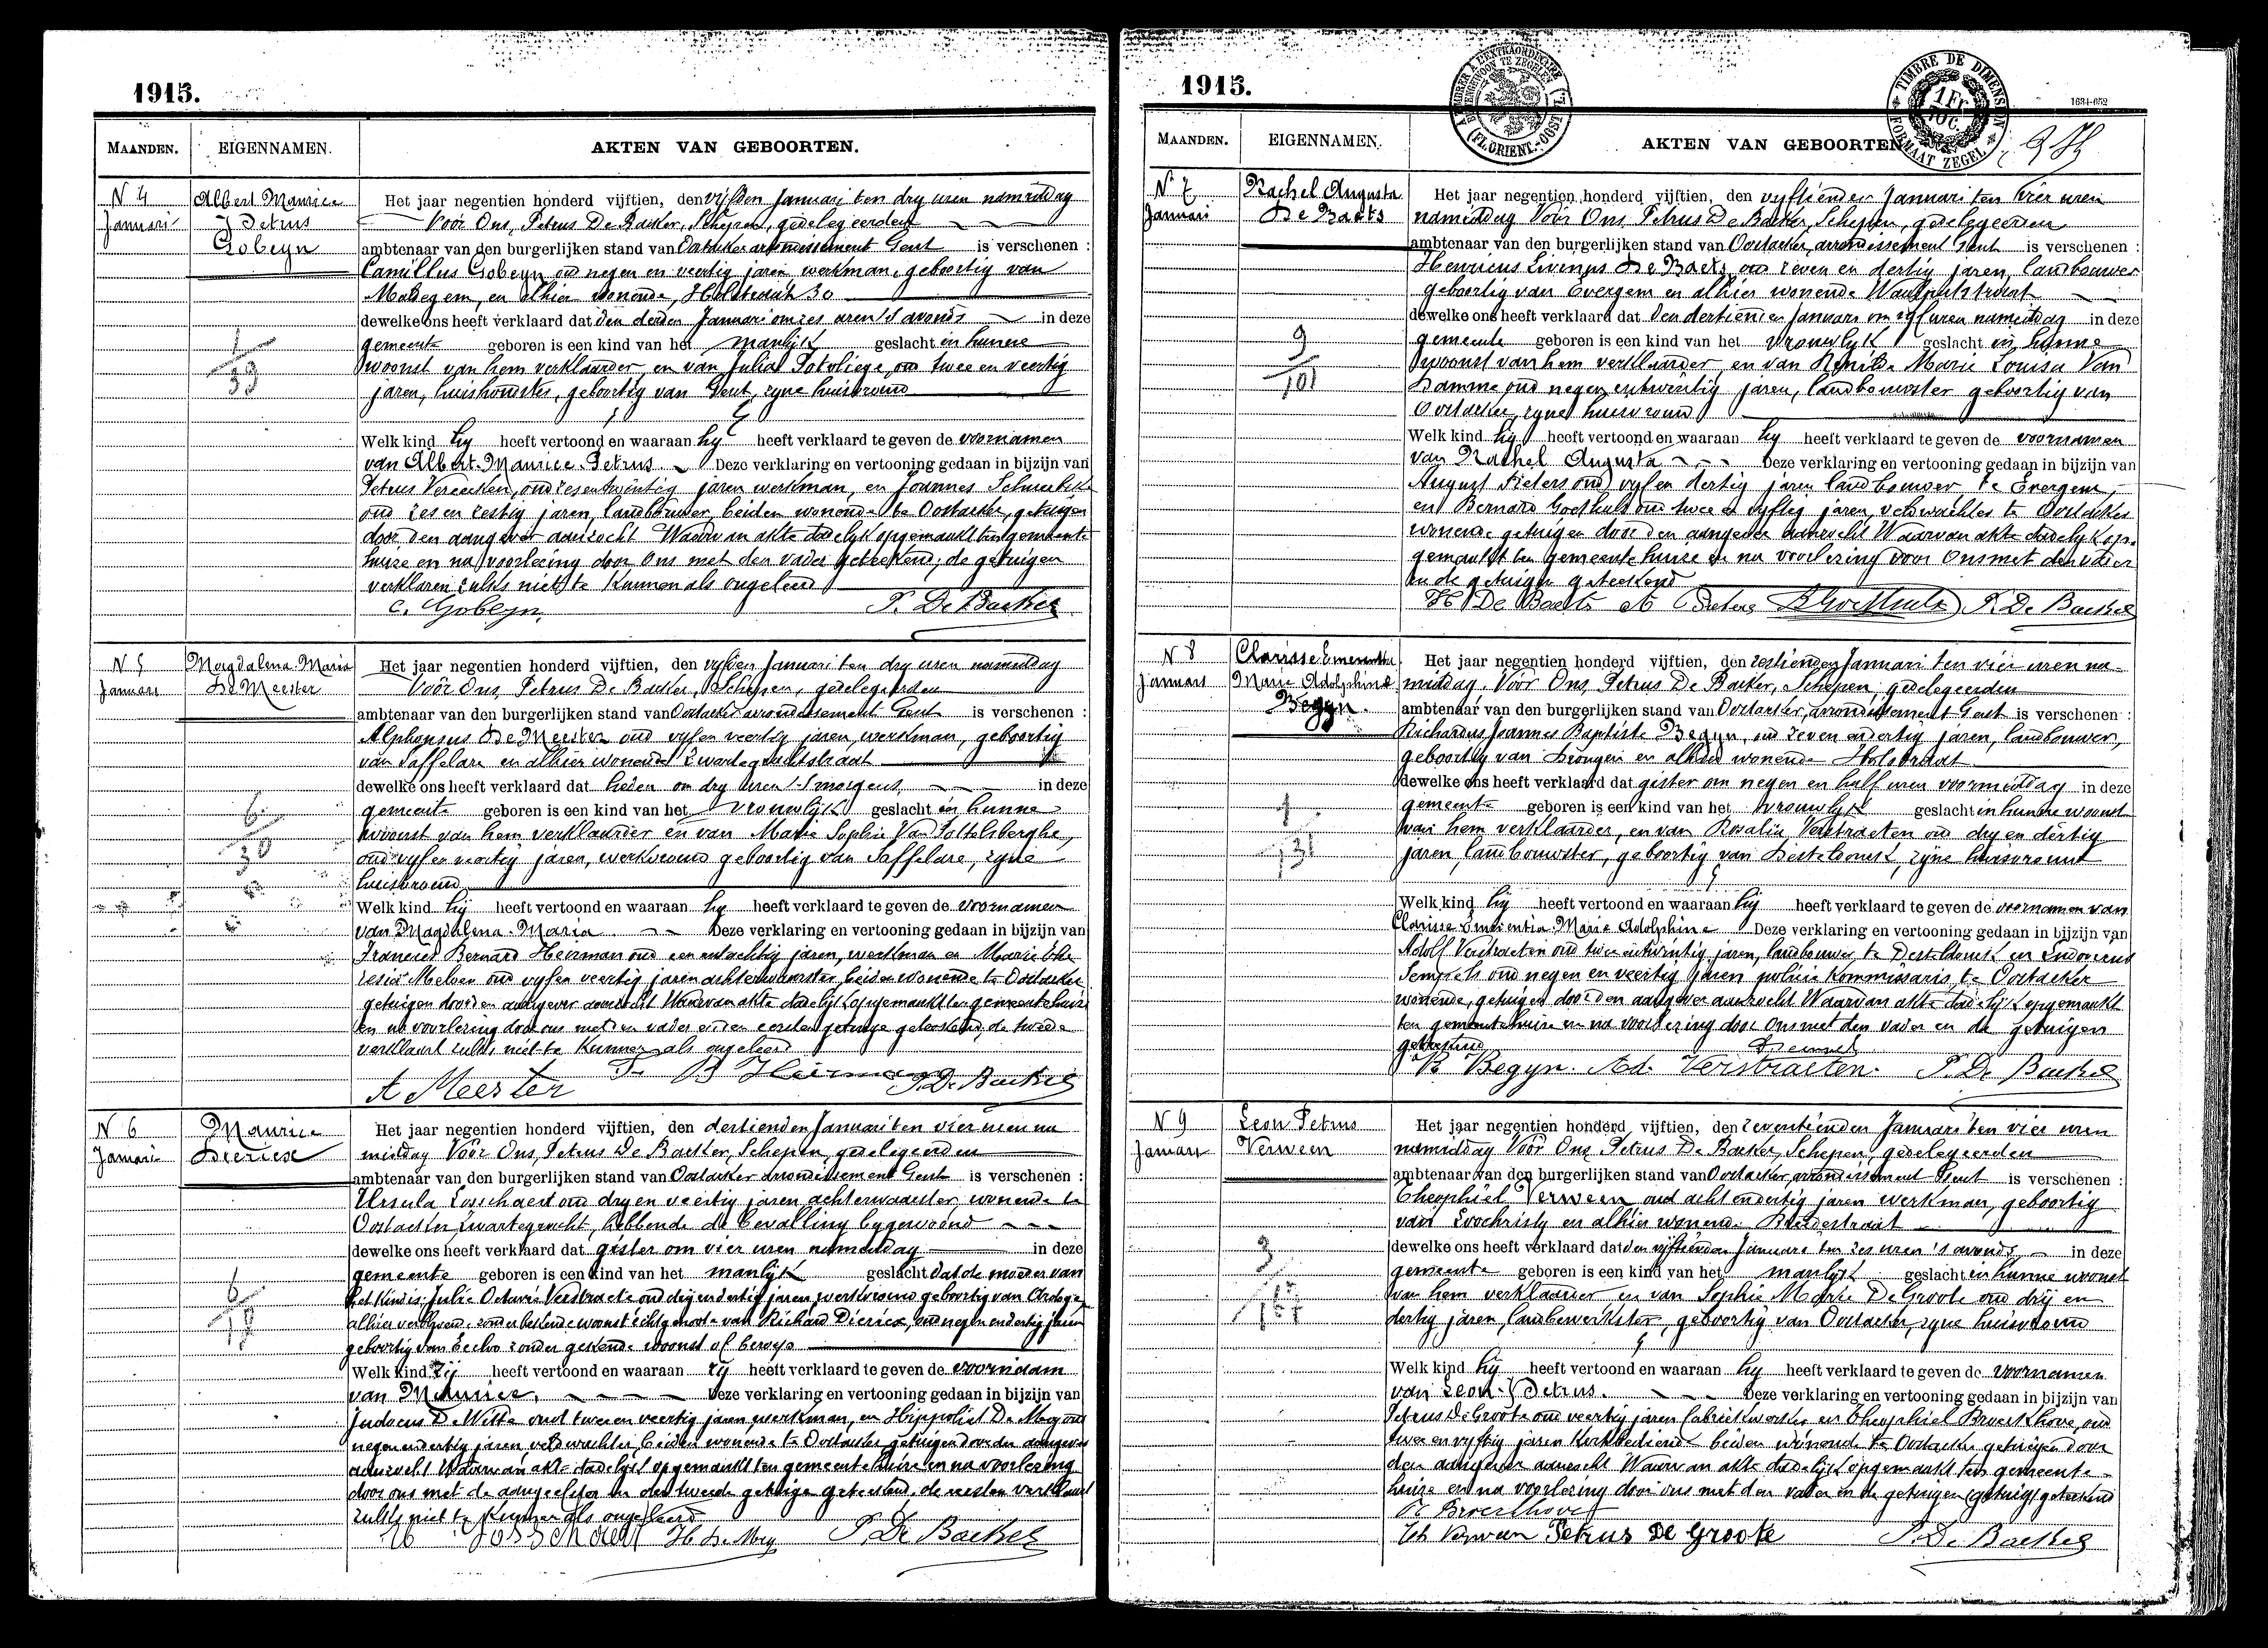 1915.
MAANDEN. EIGENNAMEN. AKTEN VAN GEBOORTEN.
N 4
Januari
Albert Maurice
Petrus
Gobeyn
Het jaar negentien honderd vijftien, den vijfden Januari ten dry uren namiddag
Voor Ons, Petrus De Backer, Schepen, gedelegeerden
ambtenaar van den burgerlijken stand van Oostacker arrondissement Gent is verschenen :
Camillus Gobeyn oud negen en veertig jaren werkman, geboortig van
en alhier wonende, 30
dewelke ons heeft verklaard dat den derden Januari om zes uren 's avonds in deze
gemeente geboren is een kind van het manlijk geslacht in hunne
woonst van hem verklaarder, en van Julia oud twee en veertig
jaren, huishoudster, geboortig van Gent, zyne huisvrouw
Welk kind hy heeft vertoond en waaraan hy heeft verklaard te geven de voornamen
van Albert-Maurice-Petrus Deze verklaring en vertooning gedaan in bijzijn van
Petrus Vereecken, oud zesentwintig jaren werkman, en Joannes
oud zes en zestig jaren, landbouwer, beiden wonende te Oostacker, getuigen
door den aangever aanzocht Waarvan akte dadelyk opgemaakt ten gemeente
huize en na voorlezing door Ons met den vader geteekend; de getuigen
verklaren zulks niet te kunnen als ongeleerd
C. Gobeyn P. De Backer
N 5
Januari
Magdalena-Maria
De Meester
Het jaar negentien honderd vijftien, den vyfden Januari ten dry uren namiddag
Voor Ons, Petrus De Backer, Schepen, gedelegeerden
ambtenaar van den burgerlijken stand van Oostacker arrondissement Gent is verschenen :
Alphonsus De Meester oud vyf en veertig jaren, werkman, geboortig
van Saffelare en alhier wonende Zwartegachtstraat
dewelke ons heeft verklaard dat heden om dry uren 's morgens, in deze
gemeente geboren is een kind van het vrouwlijk geslacht in hunne
woonst van hem verklaarder en van Marie Sophie Van Pottelsberghe,
oud vyf en veertig jaren, werkvrouw geboortig van Saffelare, zyne
huisvrouw
Welk kind hij heeft vertoond en waaraan hy heeft verklaard te geven de voornamen
van Magdalena-Maria Deze verklaring en vertooning gedaan in bijzijn van
Francies Bernard Heirman oud een entachtig jaren, werkman en Marie The
resia oud vyf en veertig jaren achterwaarster, beiden wonende te Oostacker
getuigen door den aangever aanzocht Waarvan akte dadelijk opgemaakt ten gemeentehuize
en na voorlezing door ons met den vader en den eersten getuige geteekend, de tweede
verklaart zulks niet te kunnen als ongeleerd
A Meester F. B Heirman P. De Backer
N 6
Januari
Maurice
Dierick
Het jaar negentien honderd vijftien, den dertienden Januari ten vier uren na
middag Voor Ons, Petrus De Backer, Schepen, gedelegeerden
ambtenaar van den burgerlijken stand van Oostacker arrondissement Gent is verschenen :
Ursula Losschaert oud dry en veertig jaren achterwaarster, wonende te
Oostacker Zwartegracht, hebbende de bevalling bygewoond
dewelke ons heeft verklaard dat gister om vier uren namiddag in deze
gemeente geboren is een kind van het manlijk geslacht dat de moeder van
het kind is: Julie Octavie Verstraete oud drij en dertig jaren, werkvrouw geboortig van
alhier verblyvend zonder bekende woonst echtgenoote van Richard Dierick, oud negen en dertig jaren
geboortig van Eecloo zonder gekende woonst of beroep
Welk kind zij heeft vertoond en waaraan zy heeft verklaard te geven de voornaam
van Maurice, Deze verklaring en vertooning gedaan in bijzijn van
Judocus De Witte oud twee en veertig jaren, werkman, en Hippoliet De Mey oud
negen en dertig jaren, veldwachter, beiden wonende te Oostacker getuigen door den aangever
aanzocht Waarvan akte dadelijk opgemaakt ten gemeentehuize en na voorlezing
door ons met de aangeefster en den tweede getuige geteekend, de eersten verklaart
zulks niet te kunnen als ongeleerd
Losschaert H. De Mey P. De Backer
1915.
1634-652
TIMBRE DE DIMENSION
FORMAAT ZEGEL
1 Fr
(FL. ORIENT.-OOST VL.)
MAANDEN. EIGENNAMEN. AKTEN VAN GEBOORTEN
N. 7
Januari
Rachel Augusta
De Baets
Het jaar negentien honderd vijftien, den vyftienden Januari ten vier uren
namiddag Voor Ons, Petrus De Backer, Schepen, gedelegeerden
ambtenaar van den burgerlijken stand van Oostacker, arrondissement Gent is verschenen :
Henricus Livinus De Baets oud zeven en dertig jaren, landbouwer
geboortig van Evergem en alhier wonende
dewelke ons heeft verklaard dat den dertienden Januari om vyf uren namiddag in deze
9
101
gemeente geboren is een kind van het vrouwlyk geslacht in hunne
woonst van hem verklaarder, en van Marie Louisa Van
Damme oud negen entwintig jaren, landbouwster geboortig van
Oostacker, zyne huisvrouw
Welk kind hij heeft vertoond en waaraan hy heeft verklaard te geven de voornamen
van Rachel Augusta Deze verklaring en vertooning gedaan in bijzijn van
August Pieters oud vyf en dertig jaren landbouwer te Evergem,
en Bernard Goethals oud twee en vyftig jaren, veldwachter te Oostacker
wonende getuigen door den aangever aanzocht Waarvan akte dadelyk op-
gemaakt ten gemeente huize en na voorlezing door Ons met den vader
en de getuigen geteekend
H De Baets A Pieters B Goethals P. De Backer
N 8
Januari
Clarisse Emerentia
Marie Adolphine
Begyn.
Het jaar negentien honderd vijftien, den zestienden Januari ten vier uren na-
middag. Voor Ons, Petrus De Backer, Schepen, gedelegeerden
ambtenaar van den burgerlijken stand van Oostacker, arrondissement Gent is verschenen :
Richardus Joannes Baptiste Begyn, oud zeven en dertig jaren, landbouwer,
geboortig van Drongen en alhier wonende Holstraat
dewelke ons heeft verklaard dat gister om negen en half uren voormiddag in deze
gemeente geboren is een kind van het vrouwlyk geslacht in hunne woonst
van hem verklaarder, en van Rosalia Verstraeten oud dry en dertig
131
jaren, landbouwster, geboortig van Desteldonck, zijne huisvrouw
Welk kind hij heeft vertoond en waaraan hij heeft verklaard te geven de voornamen van
Clarisse Emerentia-Marie Adolphine Deze verklaring en vertooning gedaan in bijzijn van
Adolf Verstraeten oud twee entwintig jaren, landbouwer te Desteldonck en Ludovicus
oud negen en veertig jaren policie kommissaris te Oostacker
wonende, getuigen door den aangever aanzocht Waarvan akte dadelijk opgemaakt
ten gemeentehuize en na voorlezing door Ons met den vader en de getuigen
geteekend
R Begyn. Ad. Verstraeten. P. De Backer
N 9
Januari
Leon Petrus
Verween
Het jaar negentien honderd vijftien, den zeventienden Januari ten vier uren
namiddag Voor Ons, Petrus De Backer, Schepen, gedelegeerden
ambtenaar van den burgerlijken stand van Oostacker, arrondissement Gent is verschenen :
Theophiel Verween oud acht endertig jaren werkman, geboortig
van Loochristy en alhier wonende
dewelke ons heeft verklaard dat den vyftienden Januari ten zes uren 's avonds, in deze
3
gemeente geboren is een kind van het manlyk geslacht in hunne woonst
van hem verklaarder en van Sophie Marie De Groote oud drij en
dertig jaren, landbewerkster, geboortig van Oostacker, zyne huisvrouw
Welk kind hij heeft vertoond en waaraan hy heeft verklaard te geven de voornamen
van Leon-Petrus. Deze verklaring en vertooning gedaan in bijzijn van
Petrus De Groote oud veertig jaren fabriekwerker en Theophiel Broeckhove, oud
twee en vyftig jaren Kerkbediende beiden wonende te Oostacker getuigen door
den aangever aanzocht Waarvan akte dadelijk opgemaakt ten gemeente-
huize en na voorlezing door ons met den vader en de getuigen geteekend
Broeckhove
Th Verween Petrus De Groote P. De Backer